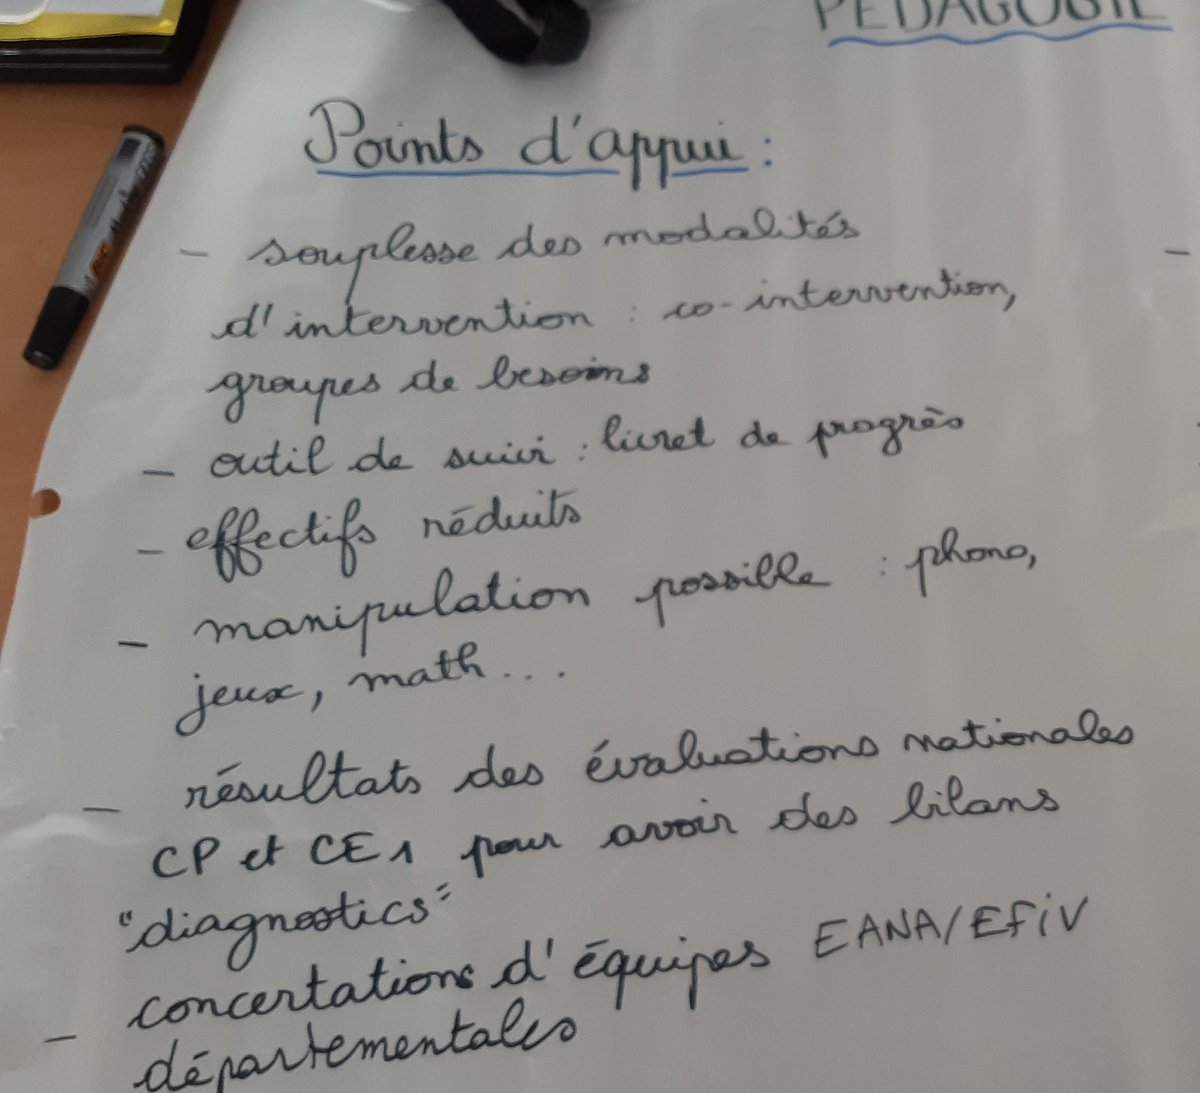 PÉDAGOGIE
Points d'appui :
- souplesse des modalités
d'intervention : co-intervention,
groupes de besoins
- outil de suivi : livret de progrès
- effectifs réduits
- manipulation possible : phono,
jeux, math...
- résultats des évaluations nationales
CP et CE1 pour avoir des bilans
"diagnostics"
- concertations d'équipes EANA/EFiV
départementales